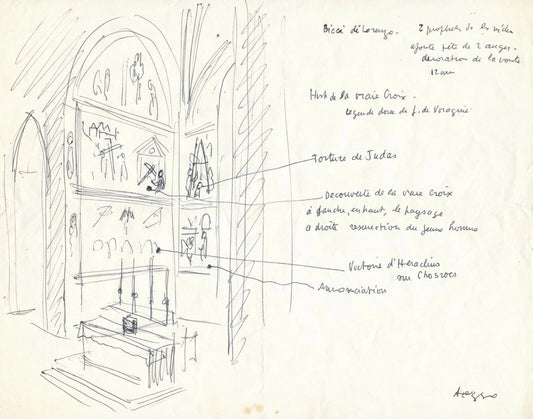 Bicci di Lorenzo. 2 prophètes de les
ajoute tête de 2 anges.
decoration de la voute
Hist de la vraie Croix.
legende doree de J. de Voragine
Torture de Judas
Decouverte de la vraie Croix
à gauche, en haut, le paysage
a droite resurrection du jeune homme
Victoire d'Heraclius
sur Chosroes
Annonciation
Arezzo